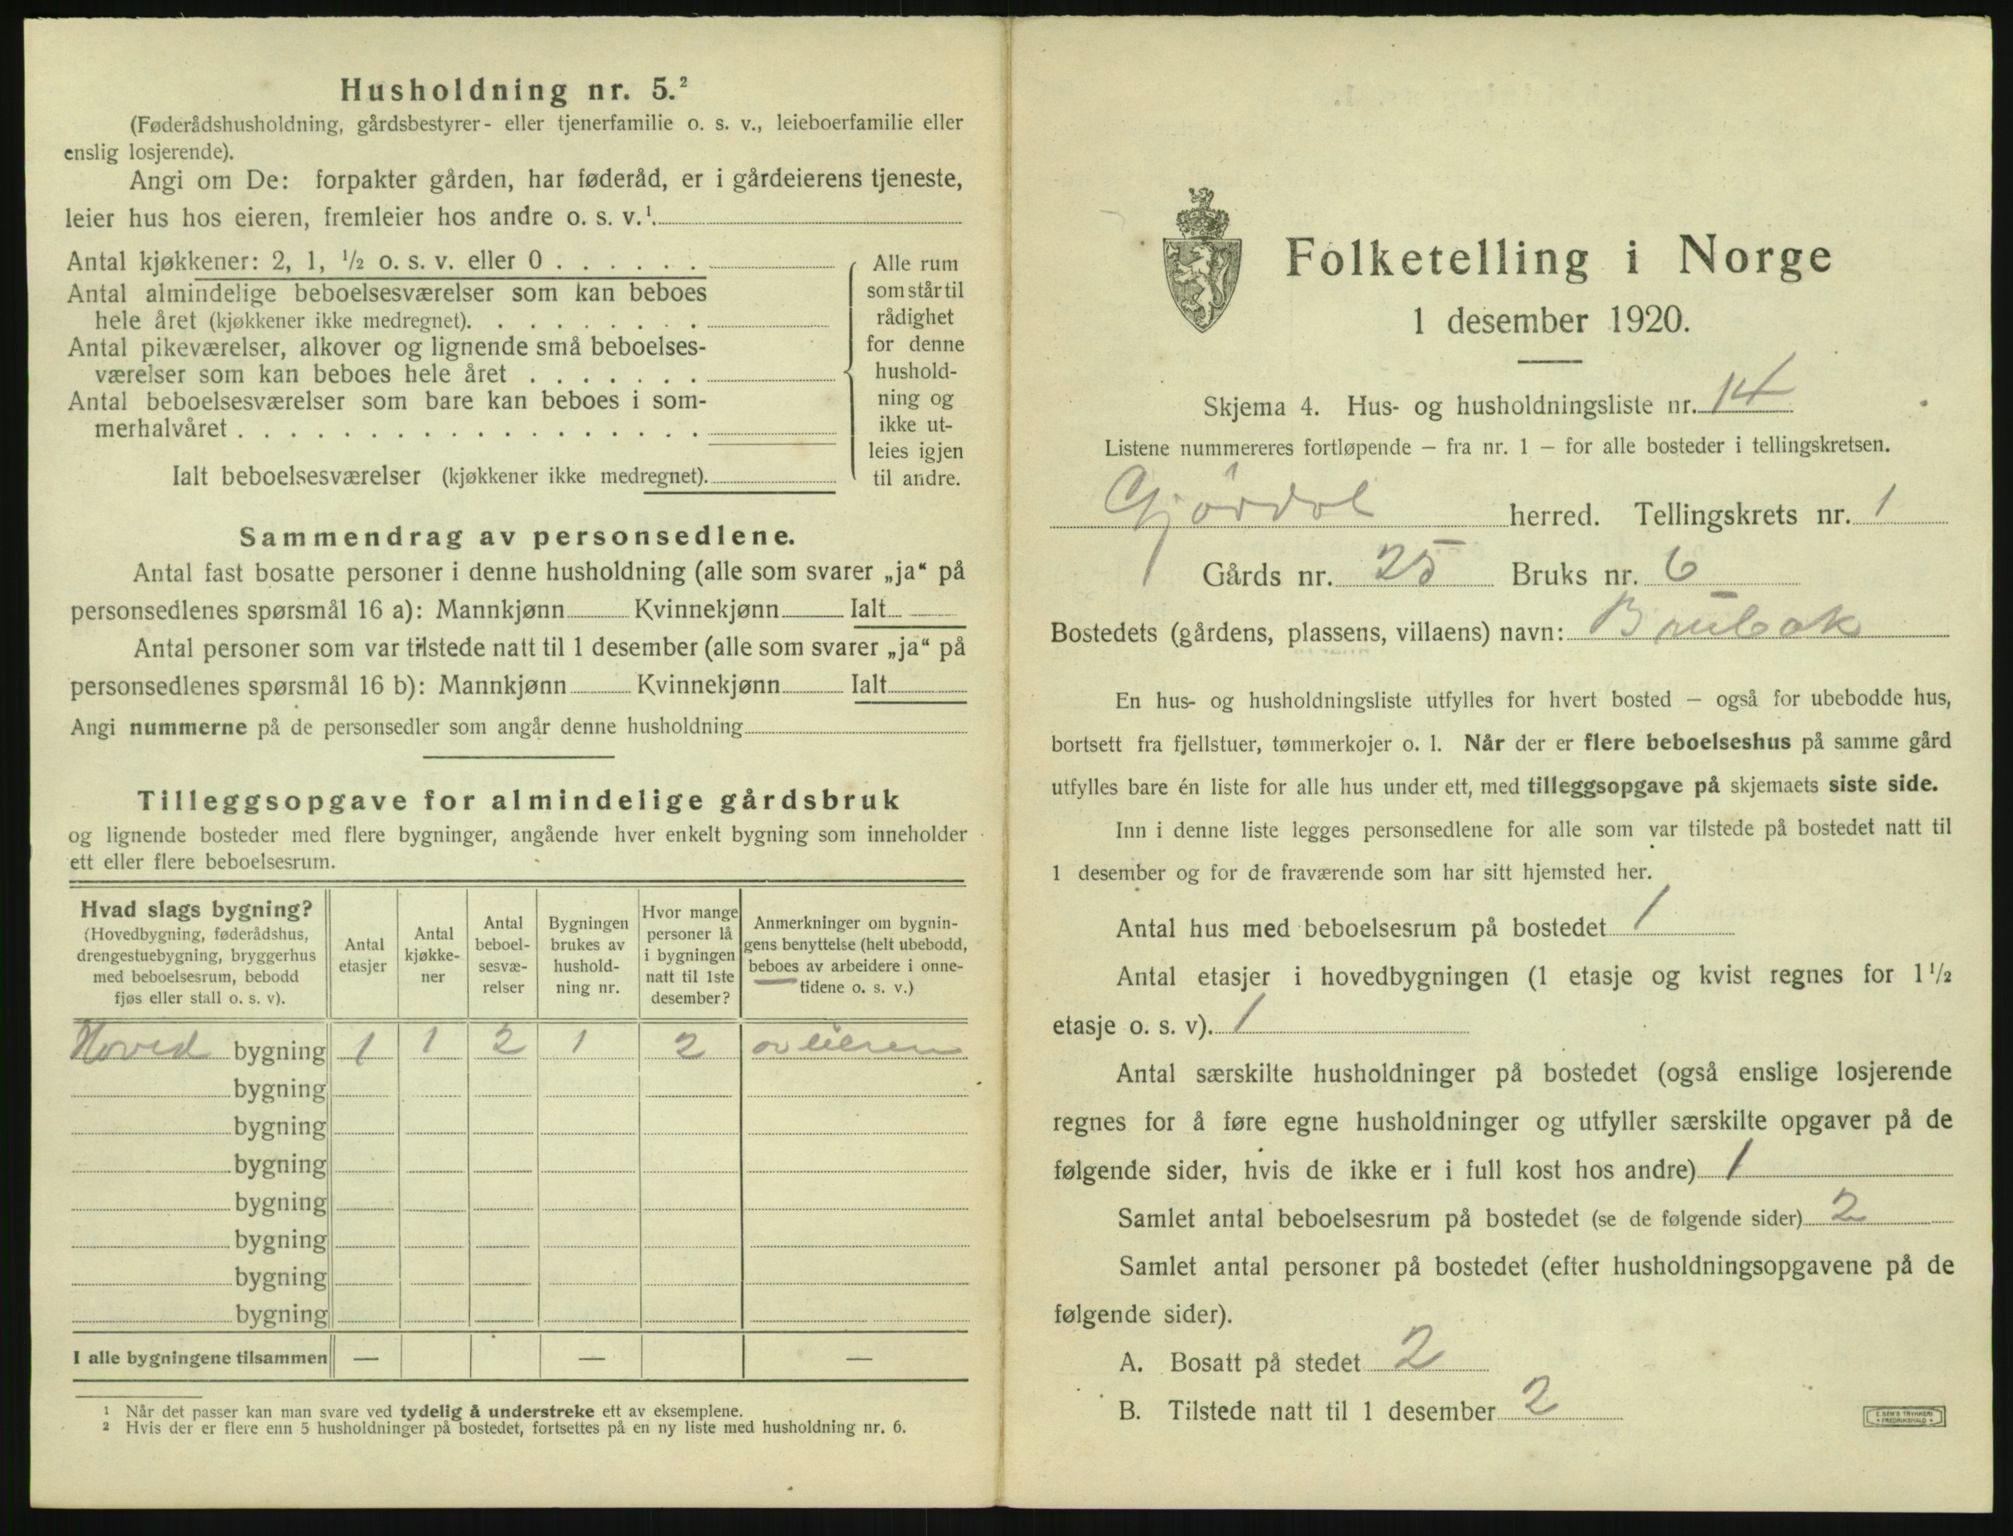 Husholdning nr. 5.²
(Føderådshusholdning, gårdsbestyrer- eller tjenerfamilie o. s. v., leieboerfamilie eller
enslig losjerende).
Angi om De: forpakter gården, har føderåd, er i gårdeierens tjeneste,
leier hus hos eieren, fremleier hos andre o. s. v.¹
Antal kjøkkener: 2, 1, ½ o. s. v. eller 0 . . . . . .
Antal almindelige beboelsesværelser som kan beboes
hele året (kjøkkener ikke medregnet). . . . . . . . .
Antal pikeværelser, alkover og lignende små beboelses-
værelser som kan beboes hele året . . . . . . .
Antal beboelsesværelser som bare kan beboes i som-
merhalvåret . . . . . . . . . . . . . . . . . .
Ialt beboelsesværelser (kjøkkener ikke medregnet).
Alle rum
som står til
rådighet
for denne
hushold-
ning og
ikke ut-
leies igjen
til andre.
Sammendrag av personsedlene.
Antal fast bosatte personer i denne husholdning (alle som svarer „ja“ på
personsedlenes spørsmål 16 a): Mannkjønn Kvinnekjønn Ialt
Antal personer som var tilstede natt til 1 desember (alle som svarer „ja“ på
personsedlenes spørsmål 16 b): Mannkjønn Kvinnekjønn Ialt
Angi nummerne på de personsedler som angår denne husholdning
Tilleggsopgave for almindelige gårdsbruk
og lignende bosteder med flere bygninger, angående hver enkelt bygning som inneholder
ett eller flere beboelsesrum.
Hvad slags bygning?
(Hovedbygning, føderådshus,
drengestuebygning, bryggerhus
med beboelsesrum, bebodd
fjøs eller stall o. s. v).
Antal
etasjer
Antal
kjøkke-
ner
Antal
beboel-
sesvæ-
relser
Bygningen
brukes av
hushold-
ning nr.
Hvor mange
personer lå
i bygningen
natt til 1ste
desember?
Anmerkninger om bygnin-
gens benyttelse (helt ubebodd,
beboes av arbeidere i onne-
tidene o. s. v.)
Hoved bygning 1 1 2 1 2 av eieren
bygning
bygning
bygning
bygning
bygning
bygning
bygning
I alle bygningene tilsammen — — —
¹ Når det passer kan man svare ved tydelig å understreke ett av eksemplene.
² Hvis der er flere enn 5 husholdninger på bostedet, fortsettes på en ny liste med husholdning nr. 6.
Folketelling i Norge
1 desember 1920.
Skjema 4. Hus- og husholdningsliste nr. 14
Listene nummereres fortløpende — fra nr. 1 — for alle bosteder i tellingskretsen.
Gjørdal herred. Tellingskrets nr. 1
Gårds nr. 25 Bruks nr. 6
Bostedets (gårdens, plassens, villaens) navn: Brubak
En hus- og husholdningsliste utfylles for hvert bosted — også for ubebodde hus,
bortsett fra fjellstuer, tømmerkojer o. l. Når der er flere beboelseshus på samme gård
utfylles bare én liste for alle hus under ett, med tilleggsopgave på skjemaets siste side.
Inn i denne liste legges personsedlene for alle som var tilstede på bostedet natt til
1 desember og for de fraværende som har sitt hjemsted her.
Antal hus med beboelsesrum på bostedet 1
Antal etasjer i hovedbygningen (1 etasje og kvist regnes for 1½
etasje o. s. v). 1
Antal særskilte husholdninger på bostedet (også enslige losjerende
regnes for å føre egne husholdninger og utfyller særskilte opgaver på de
følgende sider, hvis de ikke er i full kost hos andre) 1
Samlet antal beboelsesrum på bostedet (se de følgende sider) 2
Samlet antal personer på bostedet (efter husholdningsopgavene på de
følgende sider).
A. Bosatt på stedet 2
B. Tilstede natt til 1 desember 2
E. SEM'S TRYKKERI
FREDRIKSHALD